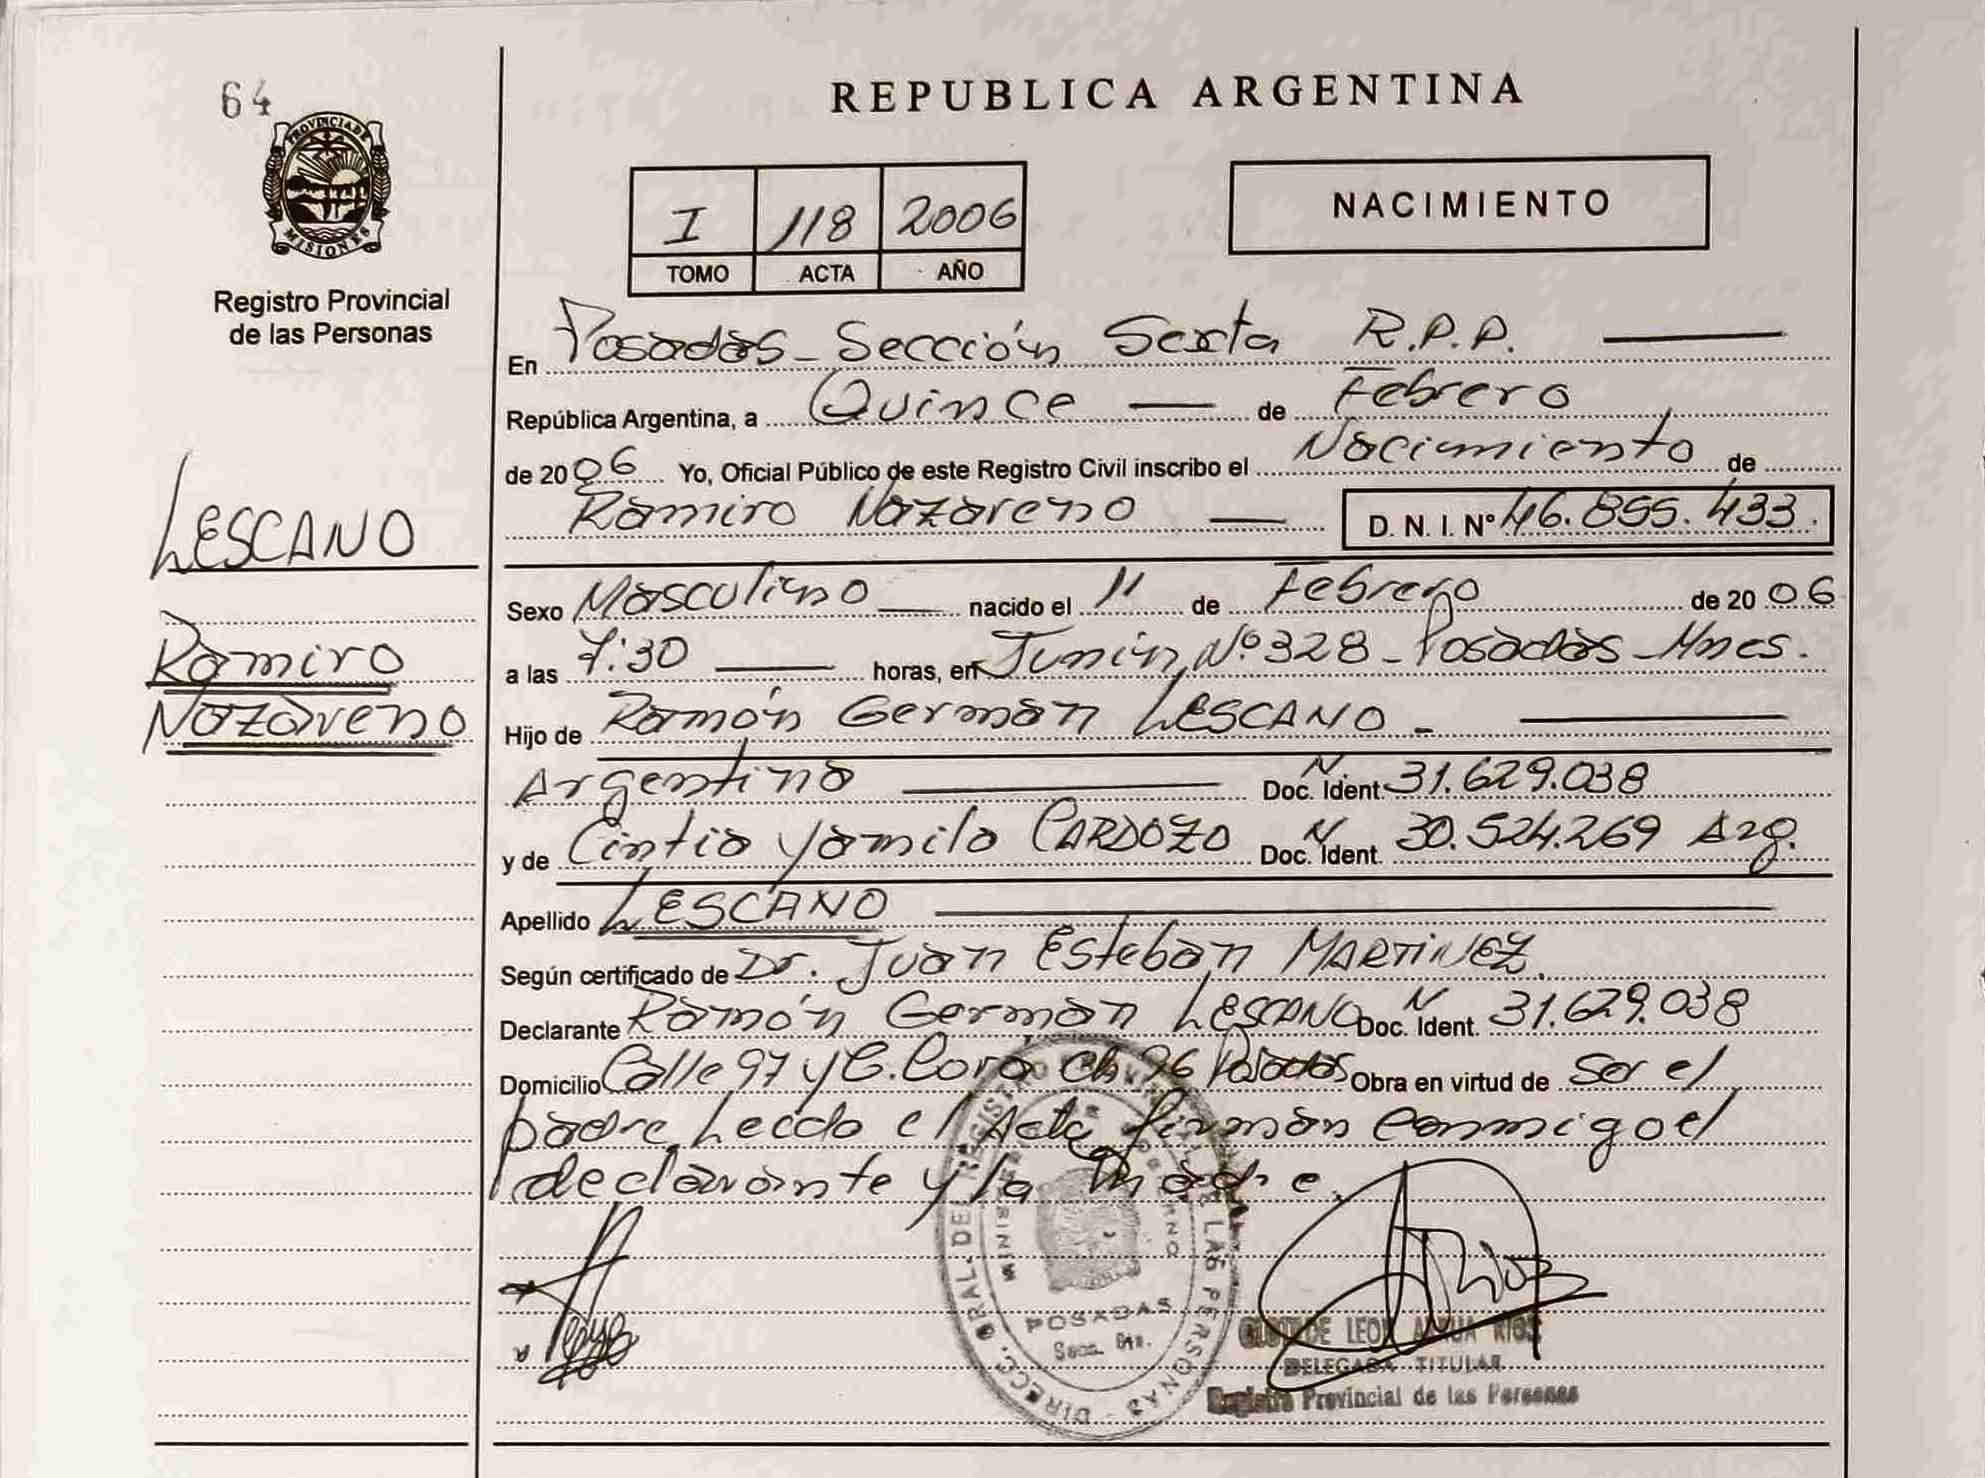 64
PROVINCIA DE
MISIONES
Registro Provincial
de las Personas
LESCANO
Ramiro
Nazareno
REPUBLICA ARGENTINA
I 118 2006
TOMO ACTA AÑO
NACIMIENTO
En Posadas - Sección Sexta R.P.P.
República Argentina, a Quince de Febrero
de 2006 Yo, Oficial Público de este Registro Civil inscribo el Nacimiento de
Ramiro Nazareno D. N. I. Nº 46.855.433.
Sexo Masculino nacido el 11 de Febrero de 2006
a las 7:30 horas, en Junín Nº 328 - Posadas - Mnes.
Hijo de Ramón Germán LESCANO -
Argentino Doc. Ident. N 31.629.038
y de Cintia Yamila CARDOZO Doc. Ident. N 30.524.269 Arg.
Apellido LESCANO
Según certificado de Dr. Juan Esteban MARTINEZ.
Declarante Ramón Germán LESCANO Doc. Ident. N 31.629.038
Domicilio Calle 97 y C. Corá Ch 96 Posadas Obra en virtud de ser el
padre. Leída el Acta, firman conmigo el
declarante y la madre.
DIRECC. GRAL. DEL REGISTRO DE LAS PERSONAS
POSADAS
Secc. 6ta.
RIOS
DELEGADA TITULAR
Registro Provincial de las Personas